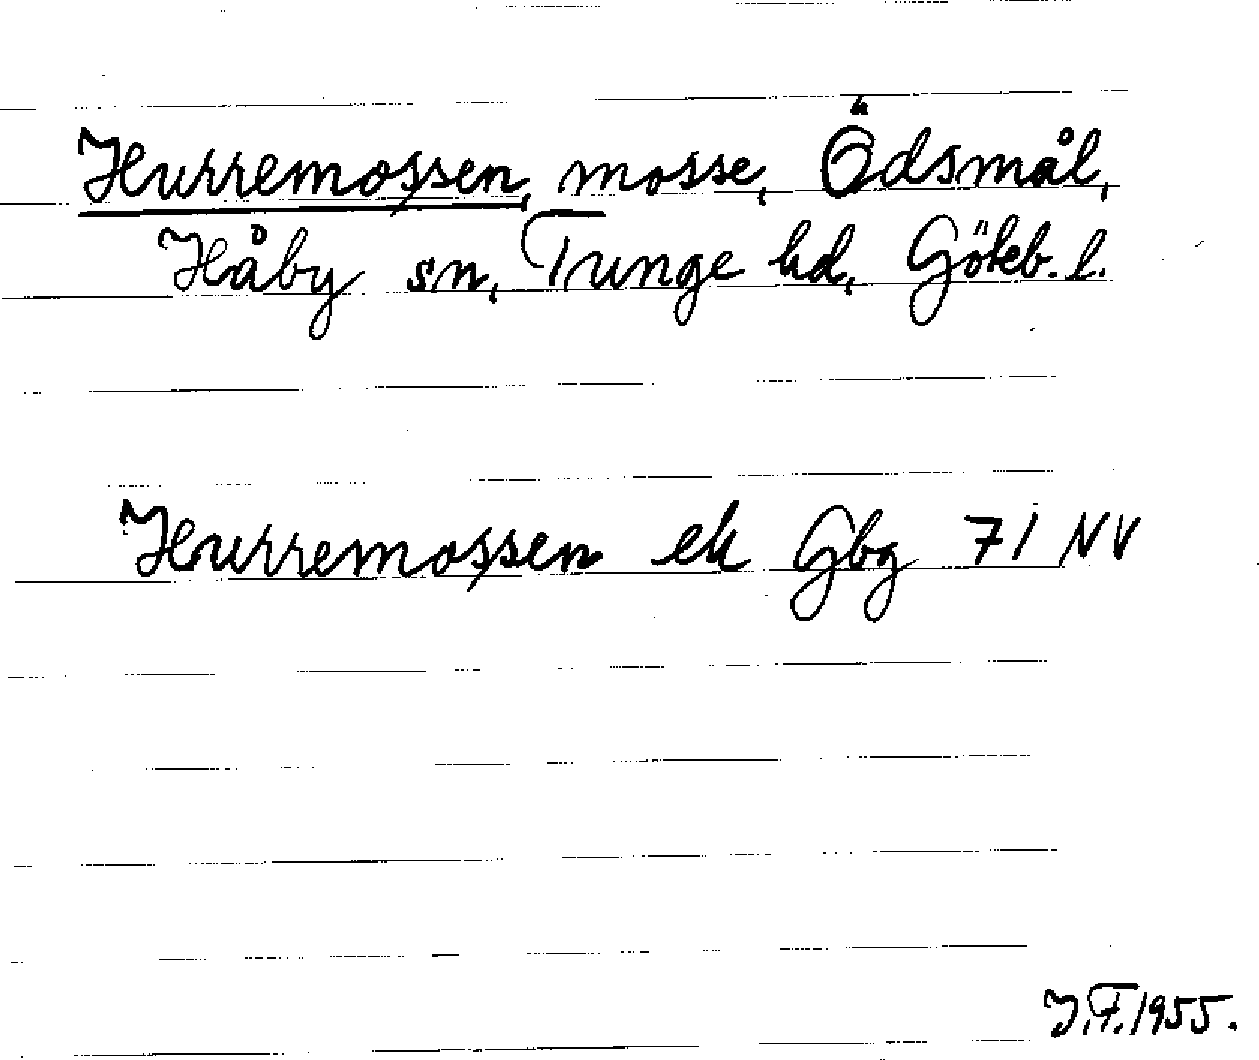 Hurremossen, mosse, Ödsmål,
Håby sn, Tunge hd, Göteb. l.
Hurremossen ek Gbg 71 NV
J.F. 1955.